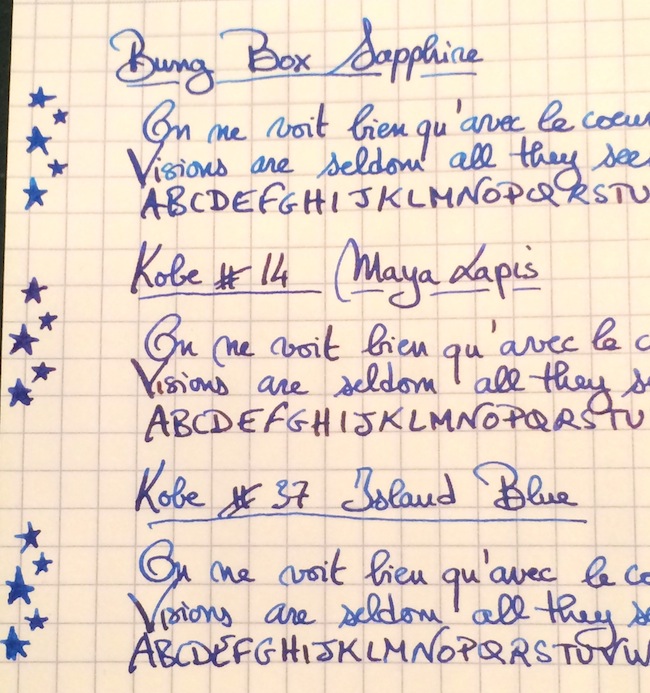 Bung Box Sapphire
On ne voit bien qu'avec le coeur
Visions are seldom all they see
ABCDEFGHIJKLMNOPQRSTU
Kobe #14 Maya Lapis
On ne voit bien qu'avec le c
Visions are seldom all they s
ABCDEFGHIJKLMNOPQRSTU
Kobe #37 Island Blue
On ne voit bien qu'avec le co
Visions are seldom all they se
ABCDEFGHIJKLMNOPQRSTUVW